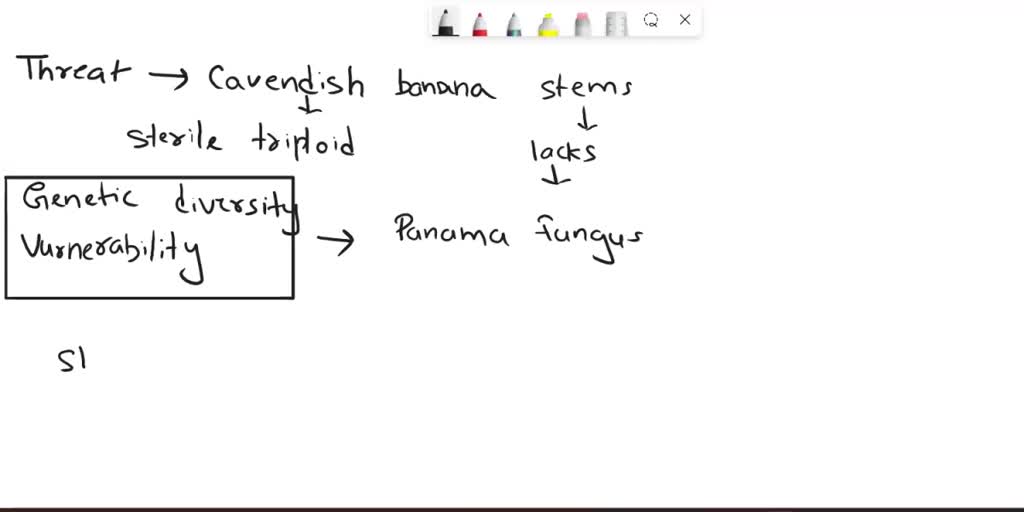 Threat → Cavendish banana stems
↓ ↓
Sterile triploid lacks
↓
Genetic diversity
Vurnerability → Panama fungus
Sl